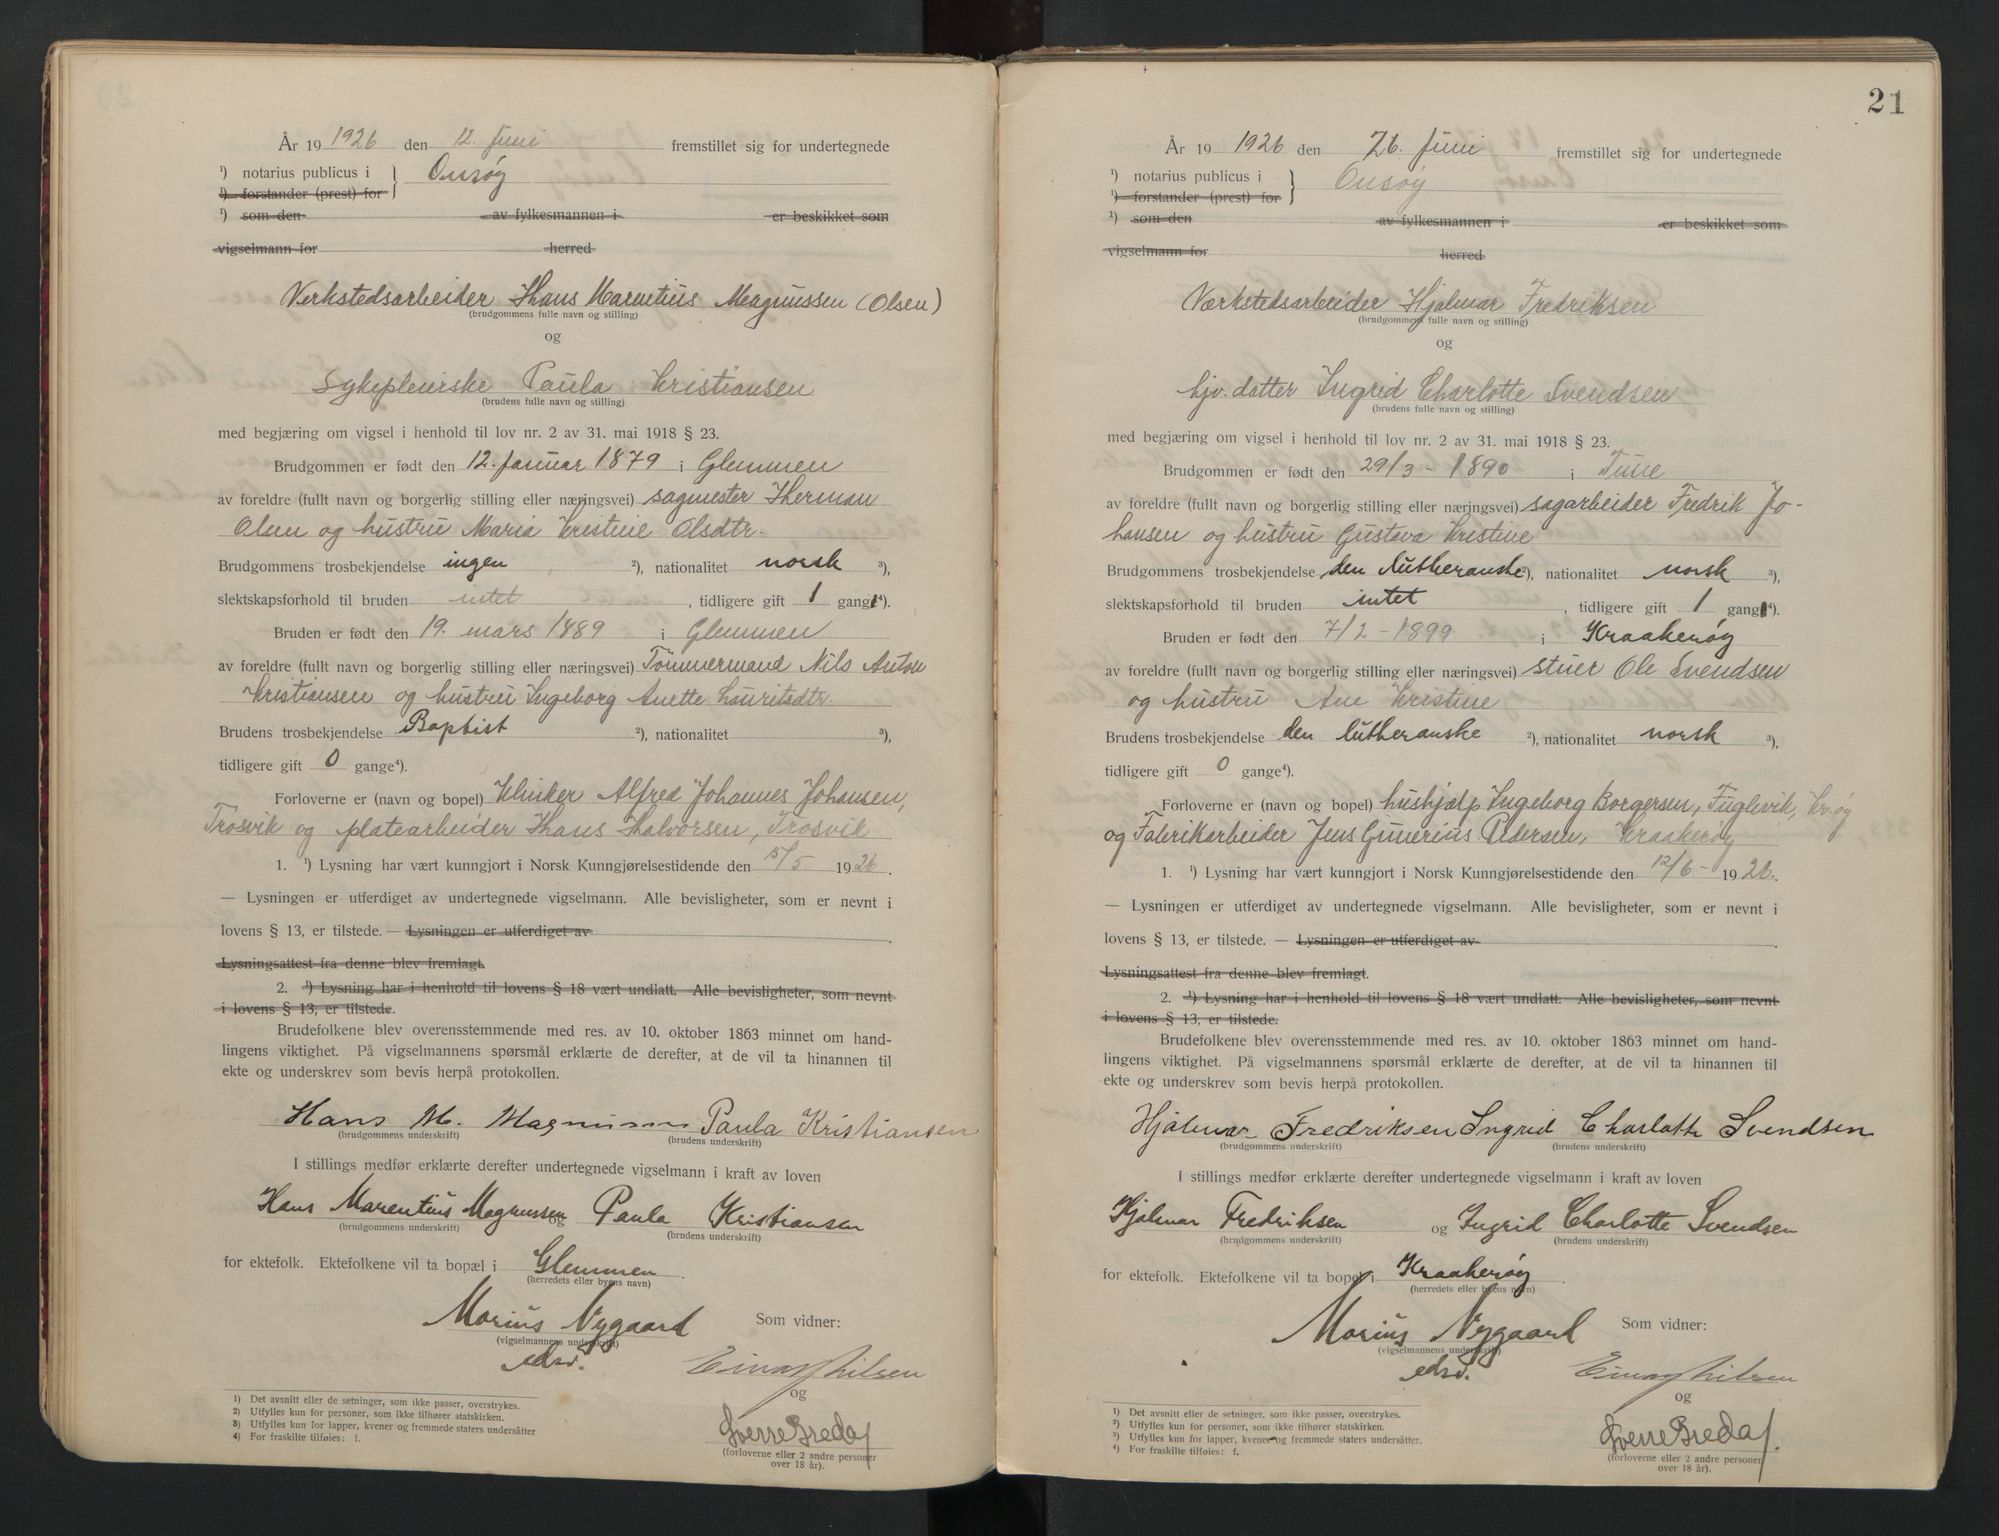 År 19 1926 den 12. Juni fremstillet sig for undertegnede
¹) notarius publicus i } Onsøy
¹) forstander (prest) for
¹) som den av fylkesmannen i er beskikket som
vigselmann for herred
Verkstedsarbeider Hans Marentius Magnussen (Olsen)
(brudgommens fulle navn og stilling)
og
Sykepleierske Paula Kristiansen
(brudens fulle navn og stilling)
med begjæring om vigsel i henhold til lov nr. 2 av 31. mai 1918 § 23.
Brudgommen er født den 12. Januar 1879 i Glemmen
av foreldre (fullt navn og borgerlig stilling eller næringsvei) sagmester Herman
Olsen og hustru Maria Kristine Olsdtr.
Brudgommens trosbekjendelse ingen ²), nationalitet norsk ³),
slektskapsforhold til bruden intet , tidligere gift 1 gang⁴).
Bruden er født den 19. mars 1889 i Glemmen
av foreldre (fullt navn og borgerlig stilling eller næringsvei) Tömmermand Nils Anton
Kristiansen og hustru Ingeborg Anette Lauritsdtr.
Brudens trosbekjendelse Baptist ²), nationalitet ³),
tidligere gift 0 gange⁴).
Forloverne er (navn og bopel) Klinker Alfred Johannes Johansen,
Trosvik og platearbeider Hans Halvorsen, Trosvik
1. ¹) Lysning har vært kunngjort i Norsk Kunngjørelsestidende den 15/5 1926.
— Lysningen er utferdiget av undertegnede vigselmann. Alle bevisligheter, som er nevnt i
lovens § 13, er tilstede. — Lysningen er utferdiget av
Lysningsattest fra denne blev fremlagt.
2. ¹) Lysning har i henhold til lovens § 18 vært undlatt. Alle bevisligheter, som nevnt
i lovens § 13, er tilstede.
Brudefolkene blev overensstemmende med res. av 10. oktober 1863 minnet om hand-
lingens viktighet. På vigselmannens spørsmål erklærte de derefter, at de vil ta hinannen til
ekte og underskrev som bevis herpå protokollen.
Hans M. Magnussen Paula Kristiansen
(brudgommens underskrift) (brudens underskrift)
I stillings medfør erklærte derefter undertegnede vigselmann i kraft av loven
Hans Marentius Magnussen og Paula Kristiansen
(brudgommens underskrift) (brudens underskrift)
for ektefolk. Ektefolkene vil ta bopæl i Glemmen
(herredets eller byens navn)
Marius Nygaard Som vidner:
(vigselmannens underskrift)
edsv. Einar Nilsen
og
Sverre Breda
(forloverne eller 2 andre personer
over 18 år).
¹) Det avsnitt eller de setninger, som ikke passer, overstrykes.
²) Utfylles kun for personer, som ikke tilhører statskirken.
³) Utfylles kun for lapper, kvener og fremmede staters undersåtter
⁴) For fraskilte tilføies: f.
21
År 19 1926 den 26. Juni fremstillet sig for undertegnede
¹) notarius publicus i } Onsøy
¹) forstander (prest) for
¹) som den av fylkesmannen i er beskikket som
vigselmann for herred
Værkstedsarbeider Hjalmar Fredriksen
(brudgommens fulle navn og stilling)
og
hjv. datter Ingrid Charlotte Svendsen
(brudens fulle navn og stilling)
med begjæring om vigsel i henhold til lov nr. 2 av 31. mai 1918 § 23.
Brudgommen er født den 29/3 - 1890 i Tune
av foreldre (fullt navn og borgerlig stilling eller næringsvei) sagarbeider Fredrik Jo-
hansen og hustru Gustava Kristine
Brudgommens trosbekjendelse den lutheranske ²), nationalitet norsk ³),
slektskapsforhold til bruden intet , tidligere gift 1 gang⁴).
Bruden er født den 7/2 - 1899 i Kraakerøy
av foreldre (fullt navn og borgerlig stilling eller næringsvei) stuer Ole Svendsen
og hustru Ane Kristine
Brudens trosbekjendelse den lutheranske ²), nationalitet norsk ³),
tidligere gift 0 gange⁴).
Forloverne er (navn og bopel) hushjælp Ingeborg Borgersen, Fuglevik, Kr.øy
og Fabrikarbeider Jens Gunerius Pedersen, Kraakerøy
1. ¹) Lysning har vært kunngjort i Norsk Kunngjørelsestidende den 12/6 - 1926.
— Lysningen er utferdiget av undertegnede vigselmann. Alle bevisligheter, som er nevnt i
lovens § 13, er tilstede. — Lysningen er utferdiget av
Lysningsattest fra denne blev fremlagt.
2. ¹) Lysning har i henhold til lovens § 18 vært undlatt. Alle bevisligheter, som nevnt
i lovens § 13, er tilstede.
Brudefolkene blev overensstemmende med res. av 10. oktober 1863 minnet om hand-
lingens viktighet. På vigselmannens spørsmål erklærte de derefter, at de vil ta hinannen til
ekte og underskrev som bevis herpå protokollen.
Hjalmar Fredriksen Ingrid Charlotte Svendsen
(brudgommens underskrift) (brudens underskrift)
I stillings medfør erklærte derefter undertegnede vigselmann i kraft av loven
Hjalmar Fredriksen og Ingrid Charlotte Svendsen
(brudgommens underskrift) (brudens underskrift)
for ektefolk. Ektefolkene vil ta bopel i Kraakerøy
(herredets eller byens navn)
Marius Nygaard Som vidner:
(vigselmannens underskrift)
edsv. Einar Nilsen
og
Sverre Breda
(forloverne eller 2 andre personer
over 18 år).
¹) Det avsnitt eller de setninger, som ikke passer, overstrykes.
²) Utfylles kun for personer, som ikke tilhører statskirken.
³) Utfylles kun for lapper, kvener og fremmede staters undersåtter.
⁴) For fraskilte tilføies: f.